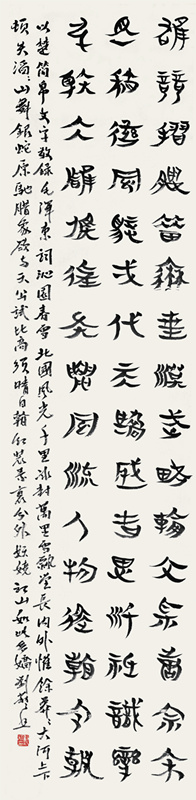 雄競摺腰惜秦皇漢武略輸文采唐宗宋
且稍遜風騷弌代天驕成吉思汗祇識彎
弓射大雕俱往矣數風流人物還看今朝
以楚簡帛文字敬錄毛澤東詞沁園春雪北國風光千里冰封萬里雪飄望長內外惟餘莽莽大河上下
頓失滔滔山舞銀蛇原馳臘象欲與天公試比高須晴日看紅裝素裹分外妖嬈江山如此多嬌